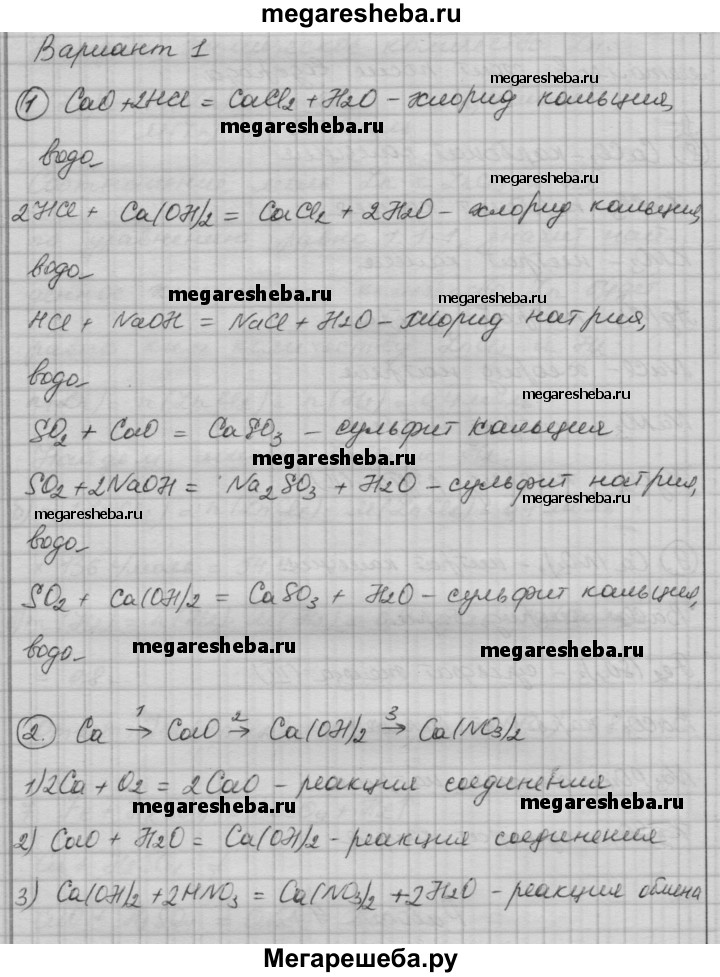 megaresheba.ru
Вариант 1
megaresheba.ru
① CaO + 2HCl = CaCl2 + H2O - хлорид кальция,
megaresheba.ru
водо-
megaresheba.ru
2HCl + Ca(OH)2 = CaCl2 + 2H2O - хлорид кальция,
водо-
megaresheba.ru
megaresheba.ru
HCl + NaOH = NaCl + H2O - хлорид натрия,
водо-
megaresheba.ru
SO2 + CaO = CaSO3 - сульфит кальция
megaresheba.ru
SO2 + 2NaOH = Na2SO3 + H2O - сульфит натрия,
megaresheba.ru
megaresheba.ru
водо-
SO2 + Ca(OH)2 = CaSO3 + H2O - сульфит кальция,
водо-
megaresheba.ru
megaresheba.ru
②. Ca →1 CaO →2 Ca(OH)2 →3 Ca(NO3)2
1) 2Ca + O2 = 2CaO - реакция соединения
megaresheba.ru
megaresheba.ru
2) CaO + H2O = Ca(OH)2 - реакция соединения
3) Ca(OH)2 + 2HNO3 = Ca(NO3)2 + 2H2O - реакция обмена
Мегарешеба.ру